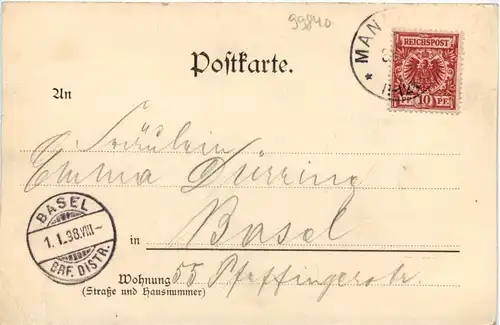 99840
* MAN
REICHSPOST
10 PF 10 PF
Postkarte.
An
Fräulein
Emma Dürring
in Basel
BASEL
1.1.98.VIII-
BRF. DISTR.
Wohnung 55 Pfeffingerstr.
(Straße und Hausnummer)